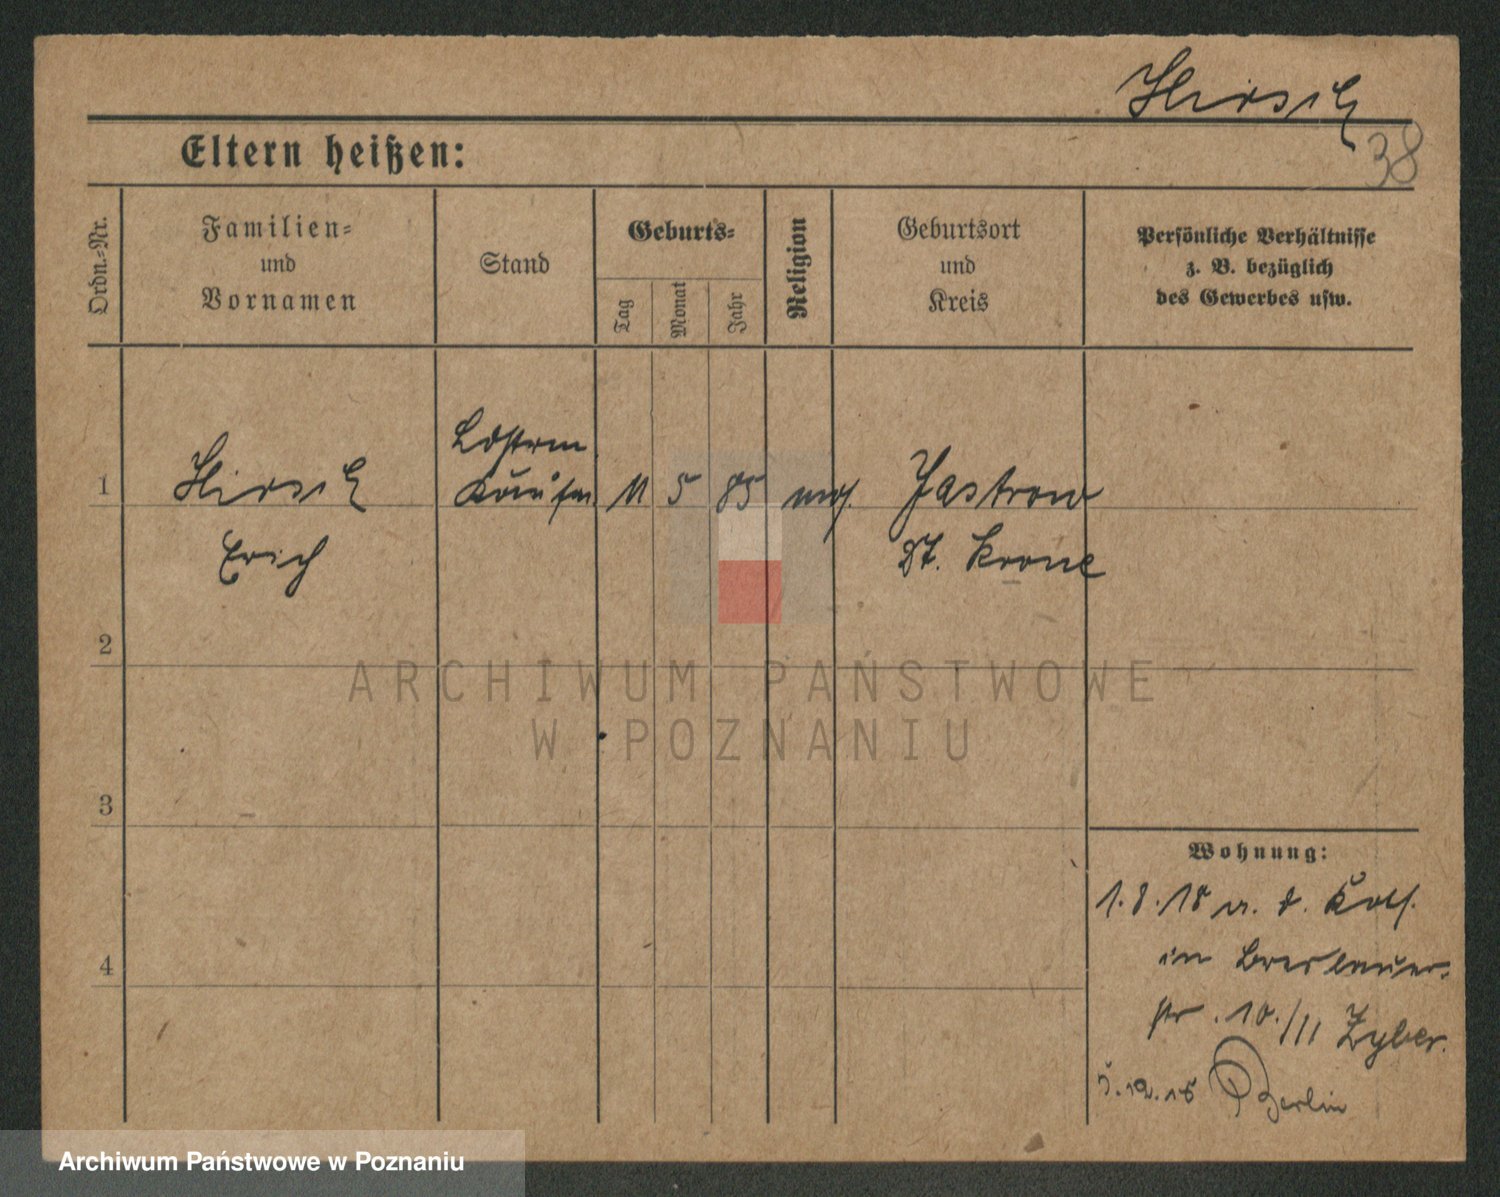 Hirsch
38
Eltern heißen:
Ordn.-Nr.
Familien-
und
Vornamen
Stand
Geburts-
Tag
Monat
Jahr
Religion
Geburtsort
und
Kreis
Persönliche Verhältnisse
z. B. bezüglich
des Gewerbes usw.
1
Hirsch
Erich
Ldstrm.
Kaufm.
11
5
85
mos.
Jastrow
Dt. Krone
2
3
4
Wohnung:
1.8.18 v. d.
in Breslauer-
str. 10./II Zyber.
5.12.18 Berlin
ARCHIWUM PAŃSTWOWE
W POZNANIU
Archiwum Państwowe w Poznaniu